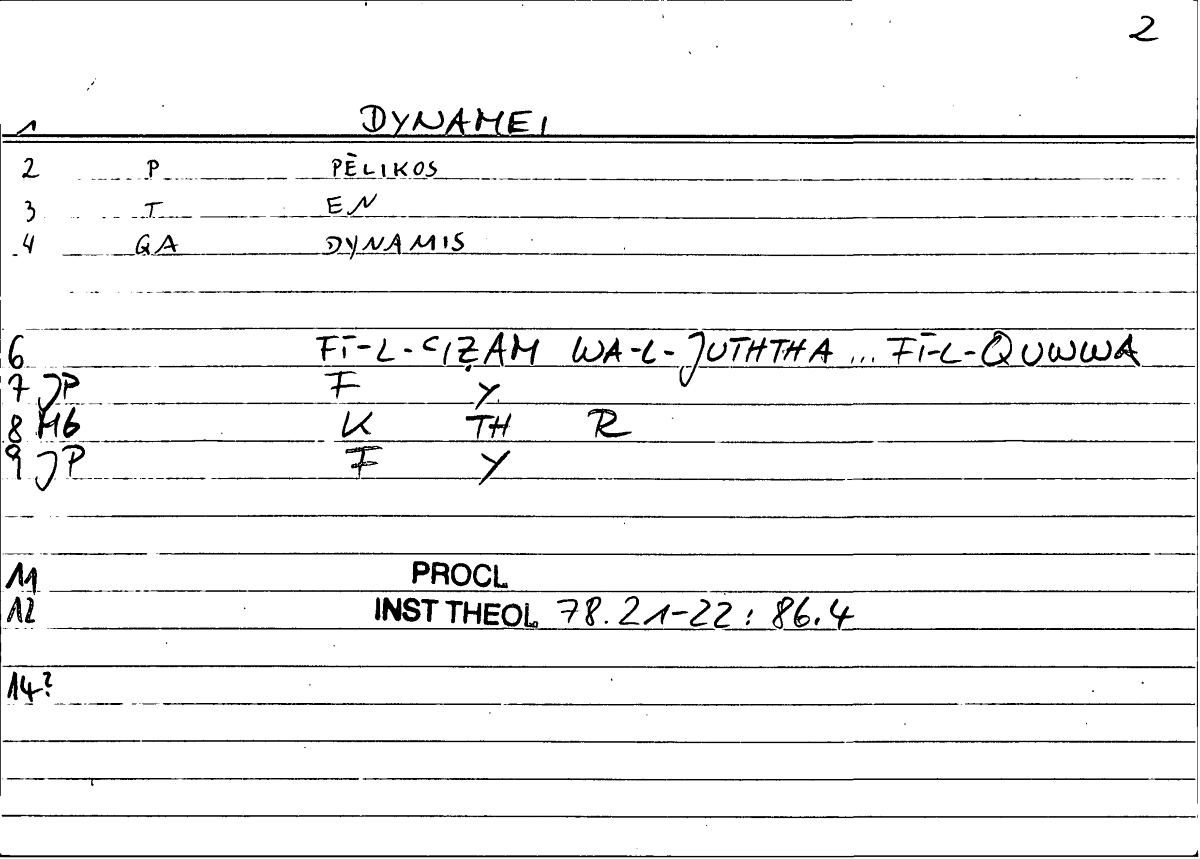 2
1 DYNAMEI
2 P PĒLIKOS
3 T EN
4 QA DYNAMIS
6 FĪ-L-ʿIẒAM WA-L-JUTHTHA ... FĪ-L-QUWWA
7 JP F Y
8 HG K TH R
9 JP F Y
11 PROCL
12 INST THEOL 78.21-22 : 86.4
14?